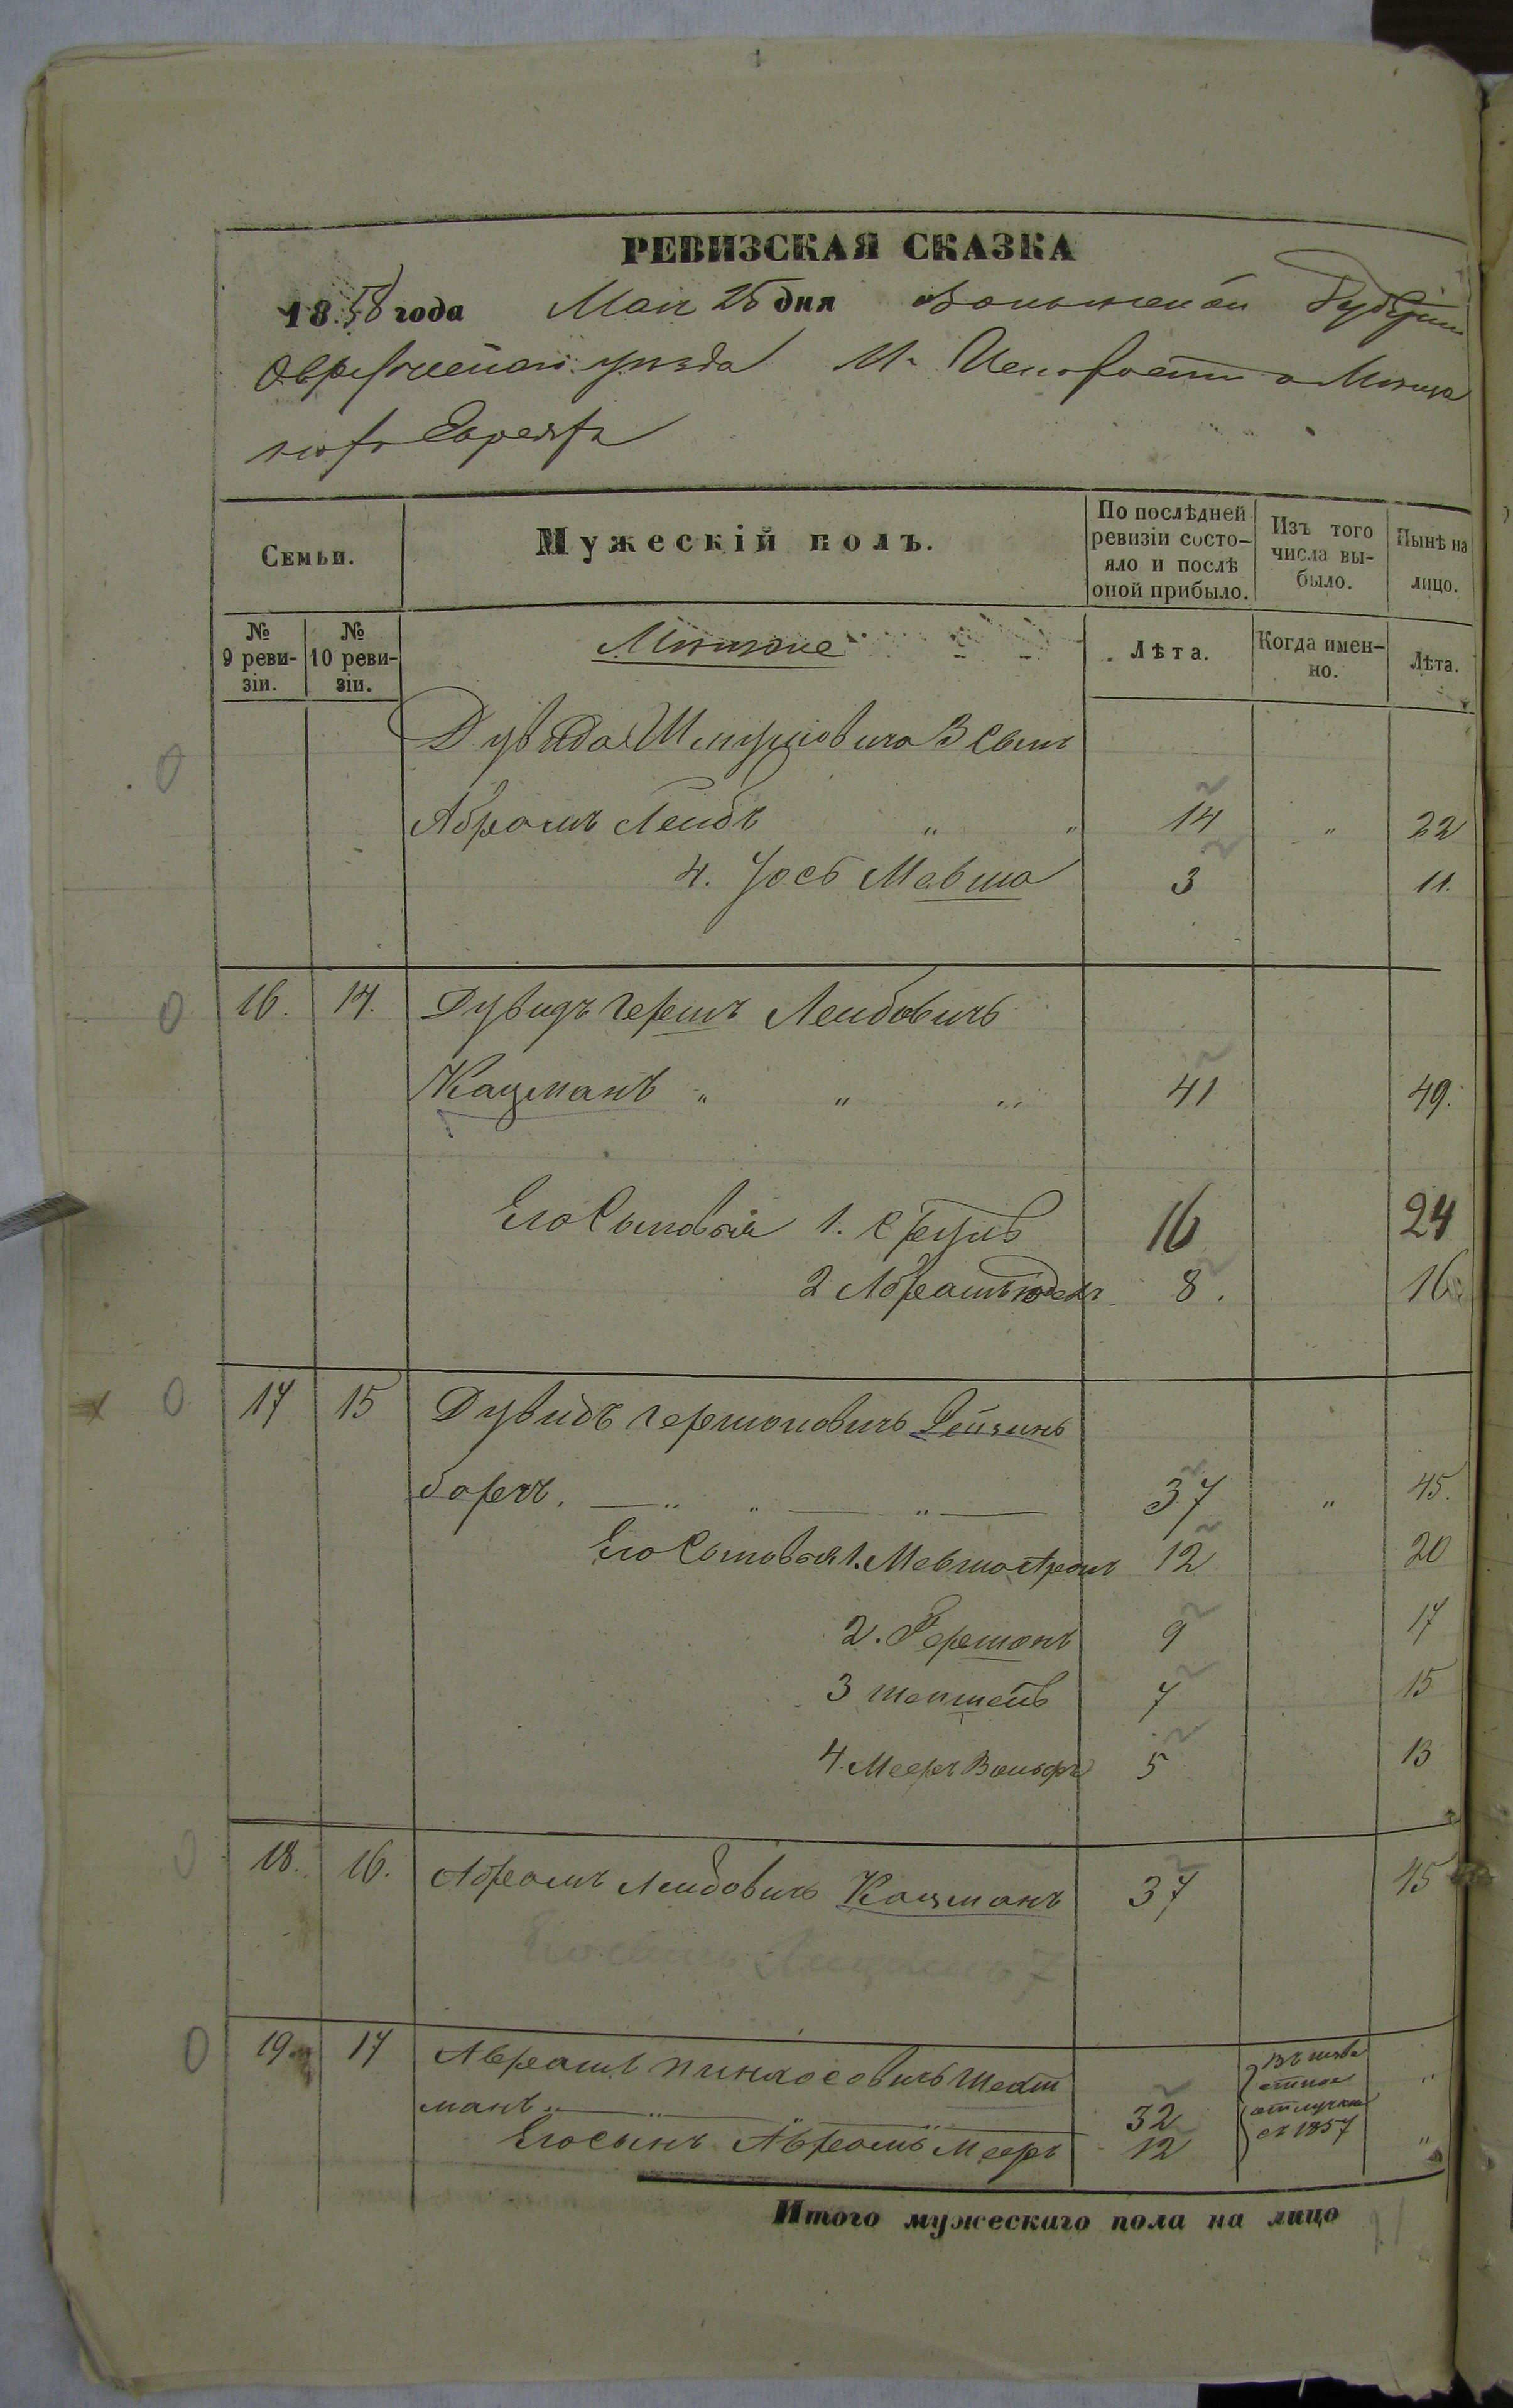 РЕВИЗСКАЯ СКАЗКА
18 58 года Мая 25 дня Волынской Губерніи
Овручскаго уѣзда М. Мѣща
новъ Евреевъ
Семьи.
Мужескій полъ.
По послѣдней ревизіи состо-
яло и послѣ оной прибыло.
Изъ того числа вы-
было.
Нынѣ на лицо.
№ 9 реви-
зіи.
№ 10 реви-
зіи.
Мѣщане
Лѣта.
Когда имен-
но.
Лѣта.
Дувида Шмулиовича 3 сынъ
Абрамъ Лейбъ " " 14 " 22
4. Іось Мовша 3 11.
16. 14. Дувидъ Гершъ Лейбовичъ
Кацманъ " " " 41 49.
Его Сыновья 1. Сруль 16 24
2 Абрамъ 8. 16
17 15 Дувидъ Гершоновичъ Рейзинъ
бергъ. " " " 37 " 45.
Его Сыновья 1. Мовша 12 20
2. Гершонъ 9 17
3 Шепшель 7 15
4. Мееръ Вольфъ 5 13
18. 16. Абрамъ Лейбовичъ Кацманъ 37 45
19 17 Авраамъ Пинхосовичъ Шехт
манъ " " " 32 "
Его сынъ Авраамъ Мееръ 12 "
отлучкѣ
съ 1857
Итого мужескаго пола на лицо